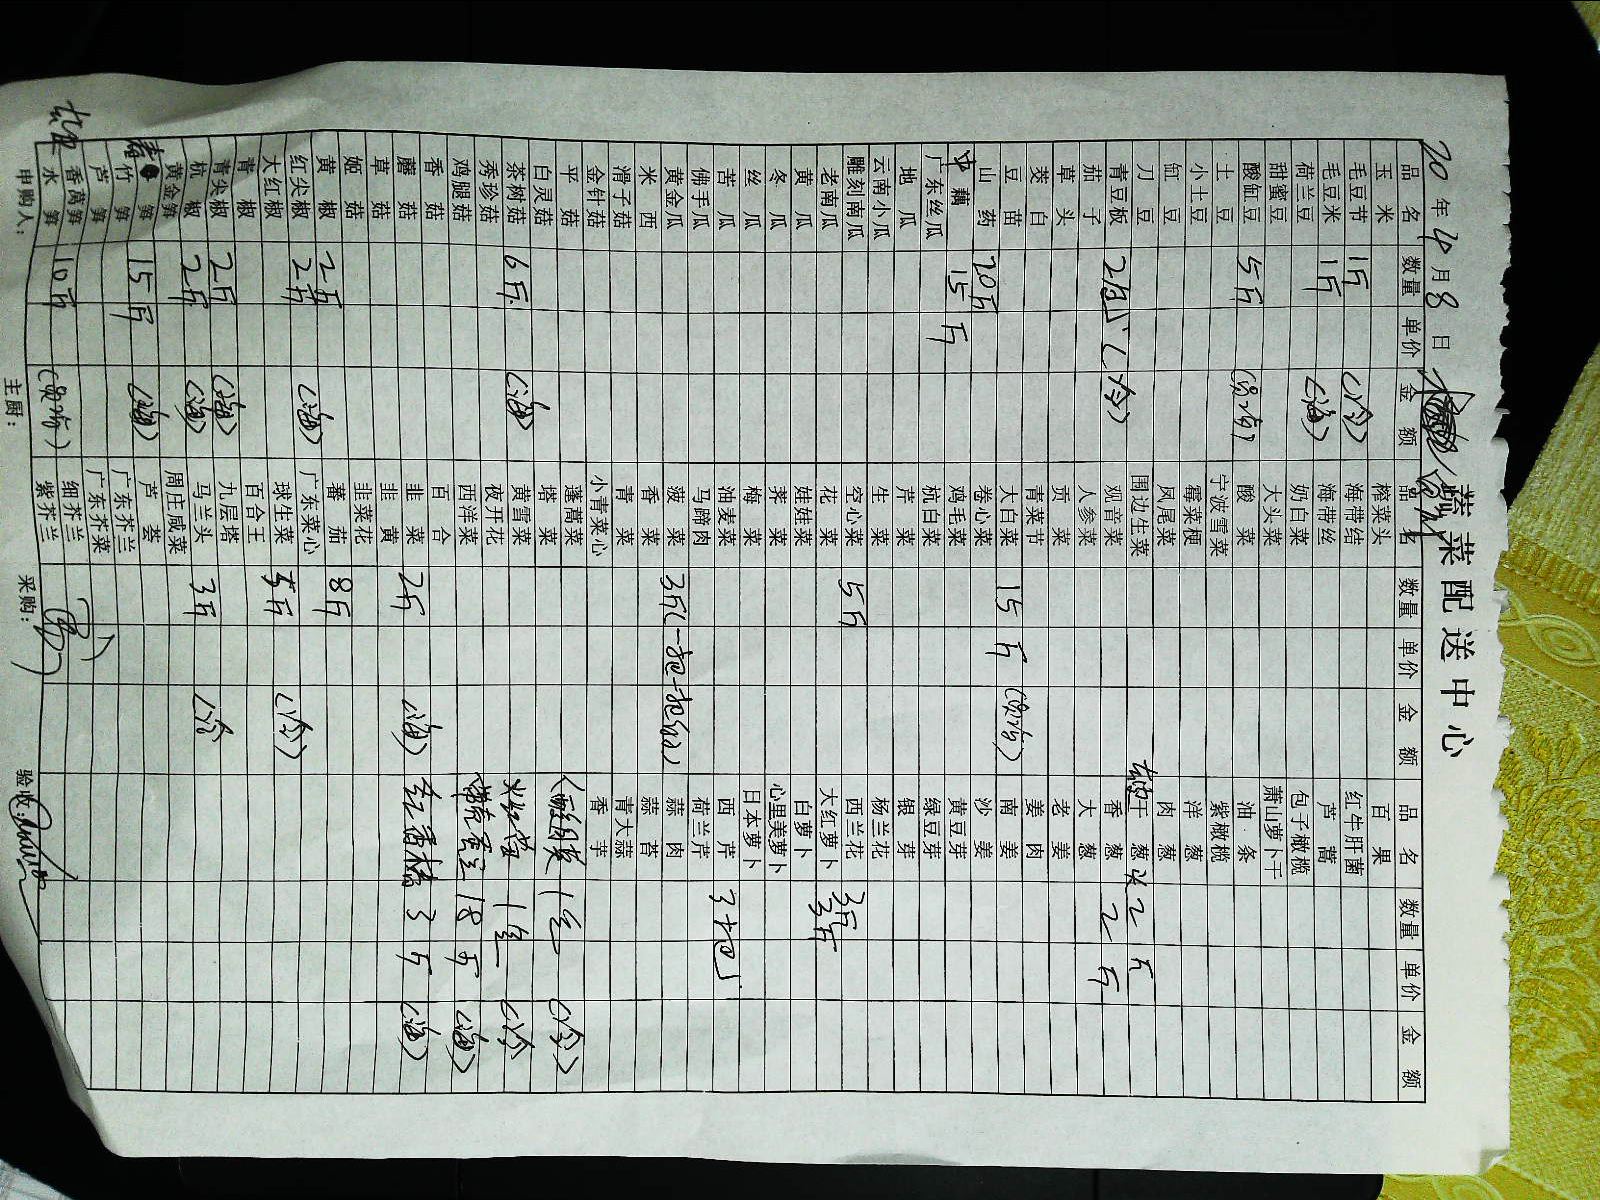 蔬菜配送中心
20 年 4 月 8 日
品名 数量 单价 金额 品名 数量 单价 金额 品名 数量 单价 金额
玉米 榨菜头 百果
毛豆节 1斤 (冷) 海带结 红牛肝菌
毛豆米 1斤 (海) 海带丝 芦蒿
荷兰豆 奶白菜 包子橄榄
甜蜜豆 大头菜 萧山萝卜干
酸缸豆 5斤 酸菜 油条
土豆 宁波雪菜 紫橄榄
小土豆 霉菜梗 洋葱
缸豆 凤尾菜 肉葱
刀豆 围边生菜 干葱头 2斤
青豆板 2包 (冷) 观音菜 香葱 2斤
茄子 人参菜 大葱
草头 贡菜 老姜
茭白 青菜节 姜肉
豆苗 大白菜 15斤 南姜
山药 20斤 卷心菜 沙姜
中藕 15斤 鸡毛菜 黄豆芽
广东丝瓜 杭白菜 绿豆芽
地瓜 芹菜 银芽
云南小瓜 生菜 杨兰花
雕刻南瓜 空心菜 5斤 西兰花 3斤
老南瓜 花菜 大红萝卜 3斤
黄瓜 娃娃菜 白萝卜
冬瓜 荠菜 心里美萝卜
丝瓜 梅菜 日本萝卜
苦瓜 油麦菜 西芹 3把
佛手瓜 马蹄肉 荷兰芹
黄金瓜 菠菜 3斤(一把一把的) 蒜肉
米西 香菜 蒜苔
滑子菇 青菜 青大蒜
金针菇 小青菜心 香芋
平菇 蓬蒿菜
白灵菇 塔菜 1包 (冷)
茶树菇 6斤 (海) 黄雪菜
秀珍菇 夜开花 1盒 (冷)
鸡腿菇 西洋菜 18斤 (海)
香菇 百合
蘑菇 韭菜 2斤 (海) 3斤 (海)
草菇 韭黄
姬菇 韭菜花
黄椒 2斤 蕃茄 8斤
红尖椒 2斤 (海) 广东菜心
大红椒 球生菜 5斤 (冷)
青椒 百合王
青尖椒 2斤 (海) 九层塔
杭椒 2斤 (海) 马兰头 3斤 (冷)
黄金笋 周庄咸菜
竹笋 15斤 (海) 芦荟
芦笋 广东芥兰
香莴笋 广东芥菜
水笋 10斤 细芥兰
紫芥兰
申购人： 主厨： 采购： 验收：